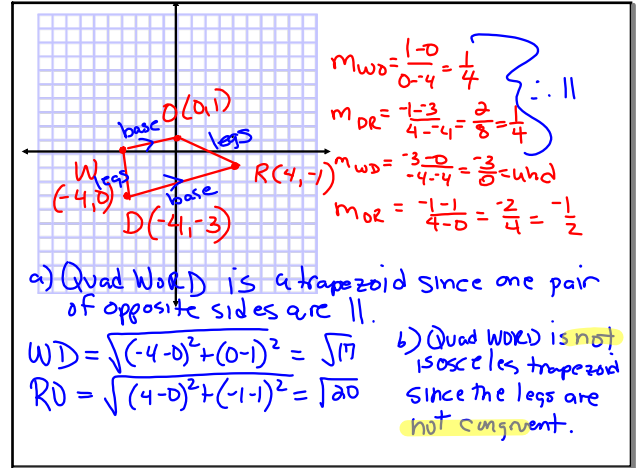 O(0,1)
base
legs
W
(-4,0)
legs
base
R(4,-1)
D(-4,-3)
m WO = 1-0/0--4 = 1/4
m DR = -1--3/4--4 = 2/8 = 1/4
∴ ||
m WD = -3-0/-4-4 = -3/0 = und
m OR = -1-1/4-0 = -2/4 = -1/2
a) Quad WORD is a trapezoid since one pair
of opposite sides are ||.
WD = √(-4-0)²+(0-1)² = √17
RO = √(4-0)²+(-1-1)² = √20
b) Quad WORD is not
isosceles trapezoid
since the legs are
not congruent.